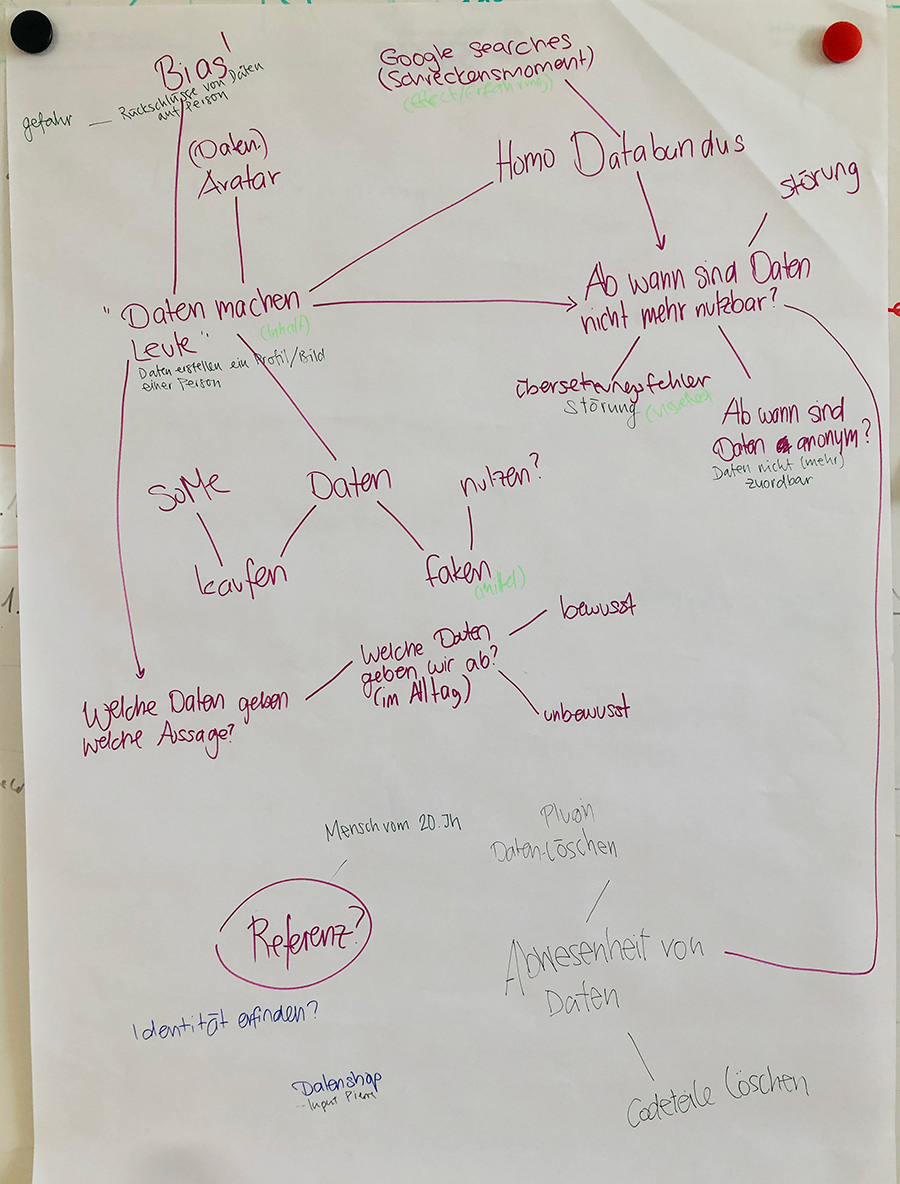 Bias!
gefahr — Rückschlüsse von Daten
auf Person
Google searches
(Schreckensmoment)
(Effect/Erfahrung)
(Daten)
Avatar
Homo Databundus
störung
"Daten machen
Leute"
(Inhalt)
Daten erstellen ein Profil/Bild
einer Person
Ab wann sind Daten
nicht mehr nutzbar?
übersetzungsfehler
störung
Ab wann sind
Daten anonym?
Daten nicht (mehr)
zuordbar
SoMe
Daten
nutzen?
kaufen
faken
(Mittel)
Welche Daten
geben wir ab?
(im Alltag)
bewusst
unbewusst
Welche Daten geben
welche Aussage?
Mensch vom 20. Jh
Plugin
Daten-Löschen
Referenz?
Abwesenheit von
Daten
Identität erfinden?
Datenshop
Input Pierre
Codeteile löschen